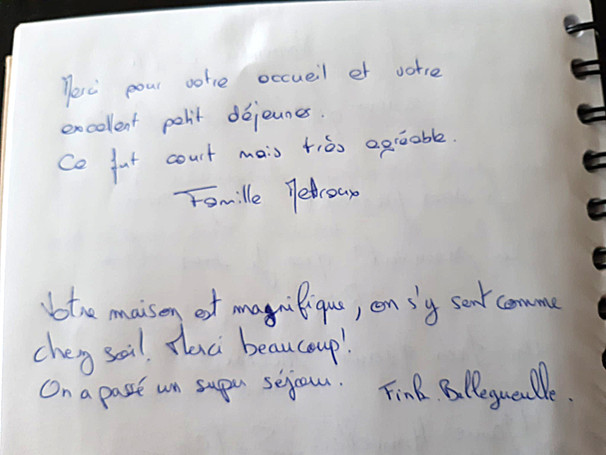 Merci pour votre accueil et votre
excellent petit déjeuner.
Ce fut court mais très agréable.
Famille Metroux
Votre maison est magnifique, on s'y sent comme
chez soi! Merci beaucoup!
On a passé un super séjour. Fink. Bellegueulle.